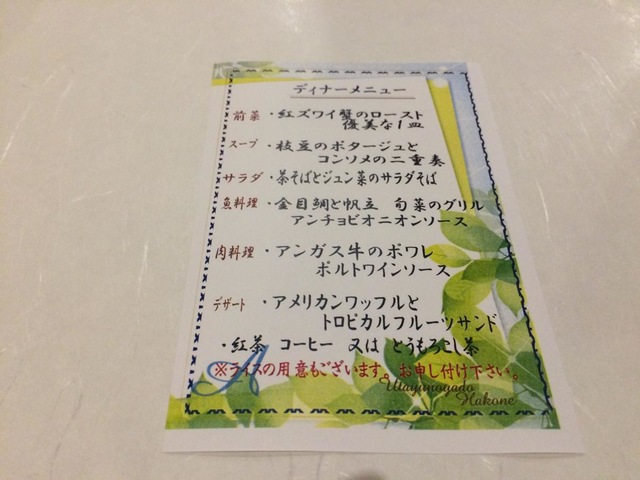 ディナーメニュー
前菜・紅ズワイ蟹のロースト
優美な1皿
スープ・枝豆のポタージュと
コンソメの二重奏
サラダ・茶そばとジュン菜のサラダそば
魚料理・金目鯛と帆立 旬菜のグリル
アンチョビオニオンソース
肉料理・アンガス牛のポワレ
ポルトワインソース
デザート・アメリカンワッフルと
トロピカルフルーツサンド
・紅茶 コーヒー 又は とうもろこし茶
※ライスの用意もございます。お申し付け下さい。
A
Utayunoyado
Hakone